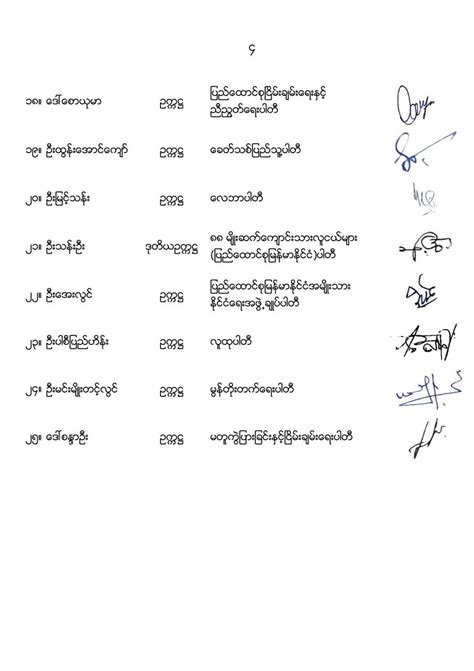 ၄
၁၈။ ဒေါ်စောယုမာ ဥက္ကဋ္ဌ ပြည်ထောင်စုငြိမ်းချမ်းရေးနှင့်
ညီညွတ်ရေးပါတီ
၁၉။ ဦးထွန်းအောင်ကျော် ဥက္ကဋ္ဌ ခေတ်သစ်ပြည်သူ့ပါတီ
၂၀။ ဦးမြင့်သန်း ဥက္ကဋ္ဌ လေဘာပါတီ
၂၁။ ဦးသန်းဦး ဒုတိယဥက္ကဋ္ဌ ၈၈ မျိုးဆက်ကျောင်းသားလူငယ်များ
(ပြည်ထောင်စုမြန်မာနိုင်ငံ)ပါတီ
၂၂။ ဦးအေးလွင် ဥက္ကဋ္ဌ ပြည်ထောင်စုမြန်မာနိုင်ငံအမျိုးသား
နိုင်ငံရေးအဖွဲ့ချုပ်ပါတီ
၂၃။ ဦးပါစီပြည်ဟိန်း ဥက္ကဋ္ဌ လူထုပါတီ
၂၄။ ဦးမင်းမျိုးတင့်လွင် ဥက္ကဋ္ဌ မွန်တိုးတက်ရေးပါတီ
၂၅။ ဒေါ်စန္ဒာဦး ဥက္ကဋ္ဌ မတူကွဲပြားခြင်းနှင့်ငြိမ်းချမ်းရေးပါတီ